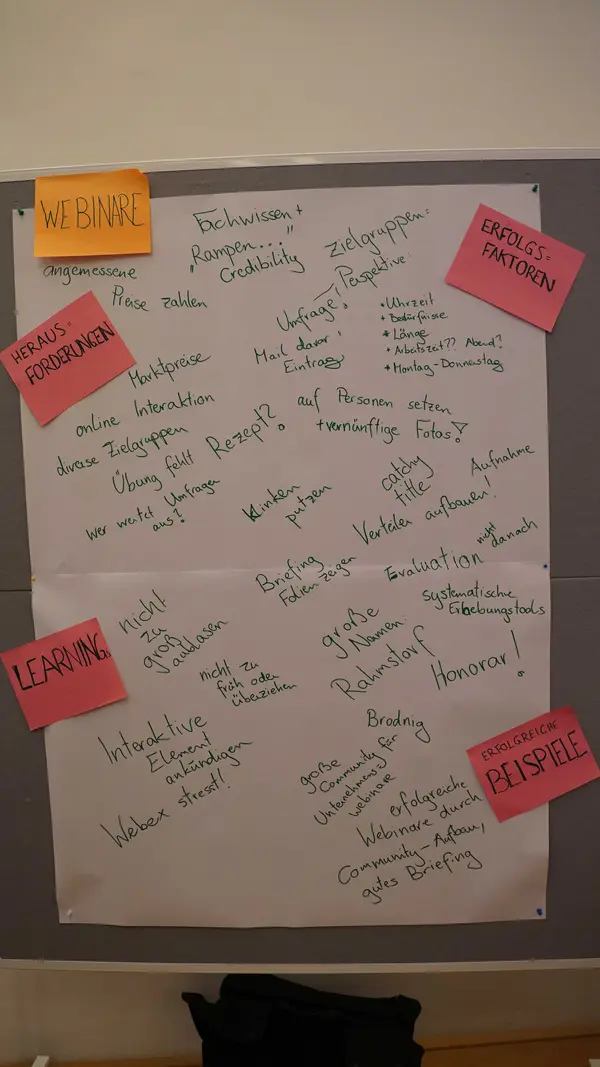 WEBINARE
Fachwissen +
„Rampen..."
Credibility
Zielgruppen:
Perspektive
ERFOLGS=
FAKTOREN
angemessene
Preise zahlen
HERAUS=
FORDERUNGEN
Umfrage!
Mail davor!
Eintrag
• Uhrzeit
+ Bedürfnisse
• Länge
• Arbeitszeit?? Abend?
• Montag-Donnerstag
Marktpreise
online Interaktion
diverse Zielgruppen
Übung fehlt
Rezept?
auf Personen setzen
+vernünftige Fotos!
wer wertet Umfragen
aus?
Klinken
putzen
catchy
title
Aufnahme
Verteiler aufbauen!
Briefing
Folien zeigen
Evaluation
nicht danach
systematische
Erhebungstools
LEARNINGS
nicht
zu
groß
auslasen
nicht zu
früh oder
überziehen
große
Namen
Rahmstorf
Honorar!
Brodnig
Interaktive
Element
ankündigen
Webex stresst!
große
Community für
Unternehmens=
webinare
ERFOLGREICHE
BEISPIELE
erfolgreiche
Webinare durch
Community-Aufbau,
gutes Briefing